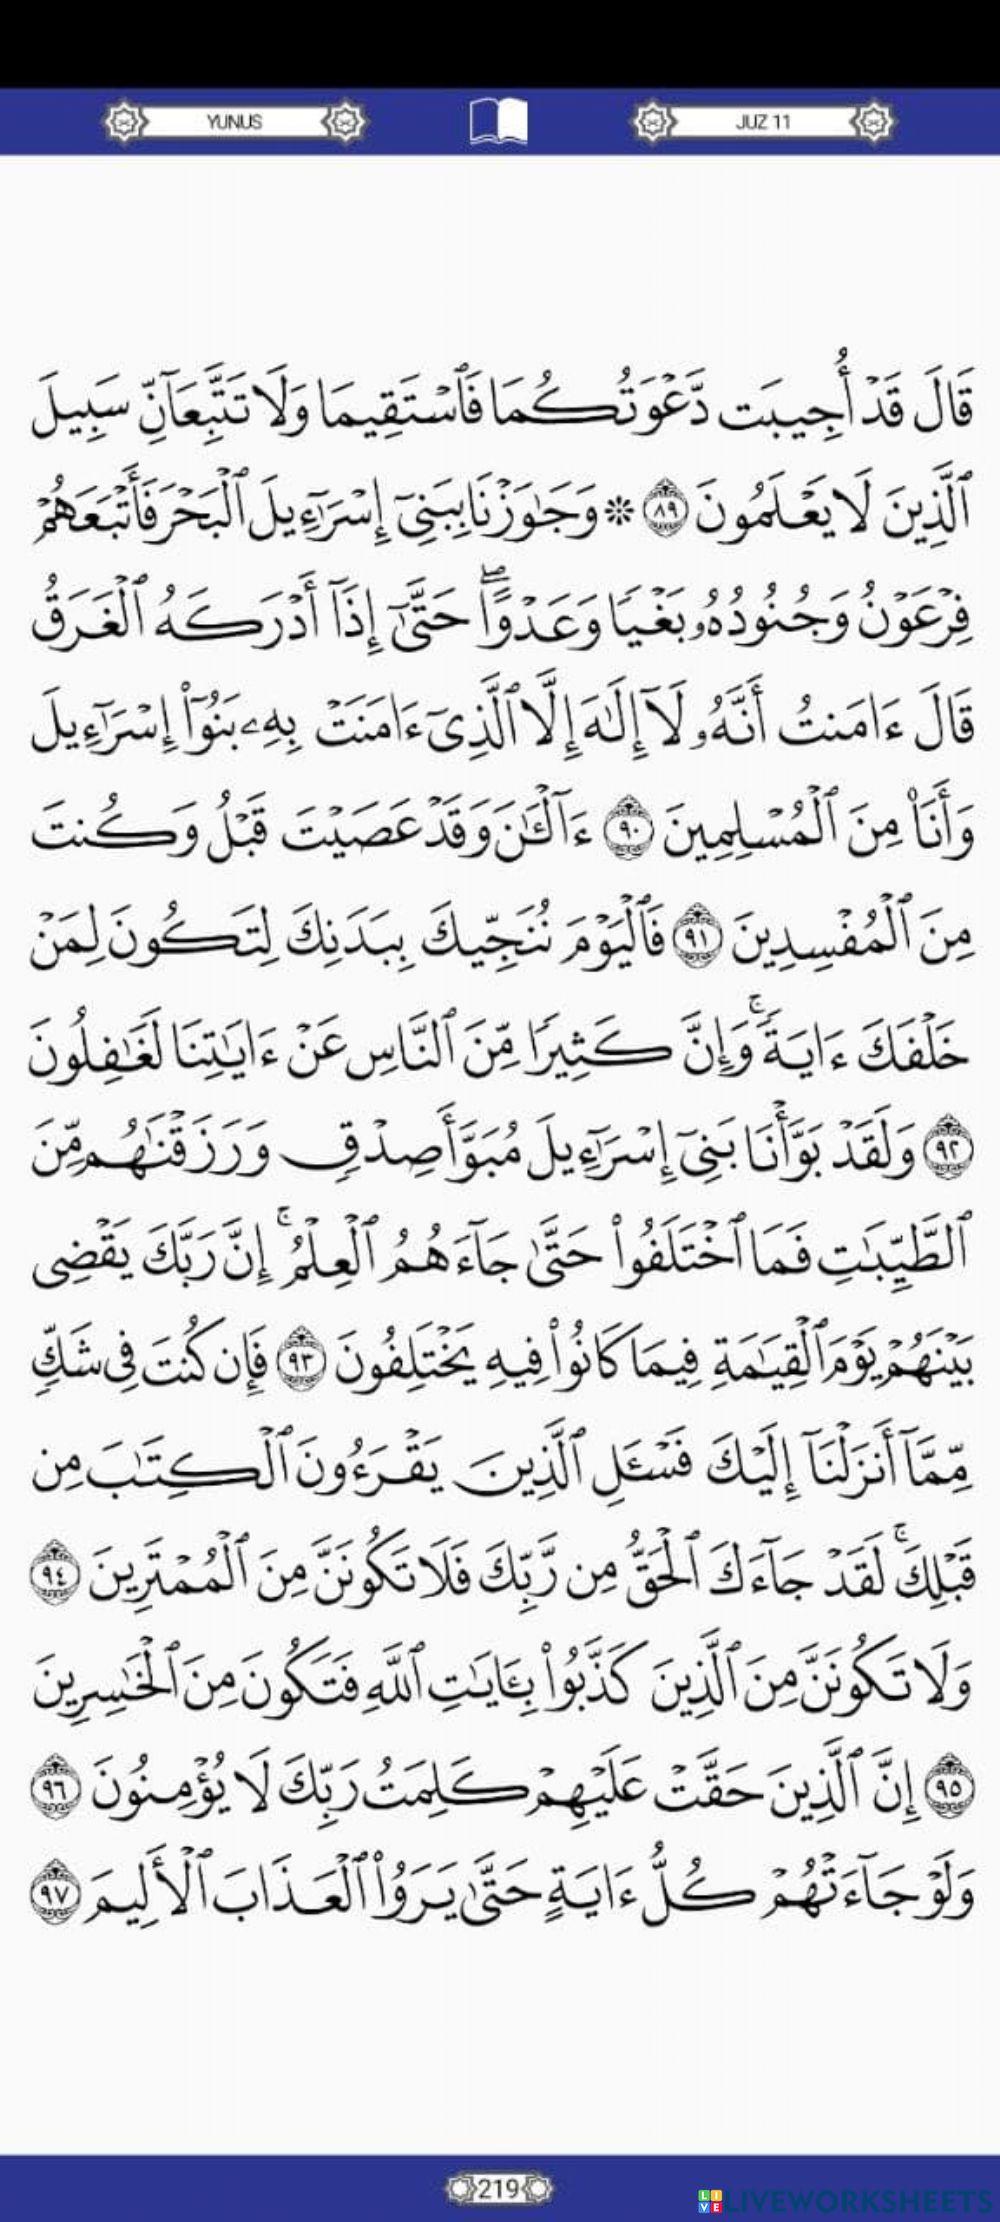 YUNUS
JUZ 11
قَالَ قَدۡ أُجِيبَت دَّعۡوَتُكُمَا فَٱسۡتَقِيمَا وَلَا تَتَّبِعَآنِّ سَبِيلَ
ٱلَّذِينَ لَا يَعۡلَمُونَ ٨٩ ۞ وَجَٰوَزۡنَا بِبَنِيٓ إِسۡرَٰٓءِيلَ ٱلۡبَحۡرَ فَأَتۡبَعَهُمۡ
فِرۡعَوۡنُ وَجُنُودُهُۥ بَغۡيٗا وَعَدۡوًاۖ حَتَّىٰٓ إِذَآ أَدۡرَكَهُ ٱلۡغَرَقُ
قَالَ ءَامَنتُ أَنَّهُۥ لَآ إِلَٰهَ إِلَّا ٱلَّذِيٓ ءَامَنَتۡ بِهِۦ بَنُوٓاْ إِسۡرَٰٓءِيلَ
وَأَنَا۠ مِنَ ٱلۡمُسۡلِمِينَ ٩٠ ءَآلۡـَٰٔنَ وَقَدۡ عَصَيۡتَ قَبۡلُ وَكُنتَ
مِنَ ٱلۡمُفۡسِدِينَ ٩١ فَٱلۡيَوۡمَ نُنَجِّيكَ بِبَدَنِكَ لِتَكُونَ لِمَنۡ
خَلۡفَكَ ءَايَةٗۚ وَإِنَّ كَثِيرٗا مِّنَ ٱلنَّاسِ عَنۡ ءَايَٰتِنَا لَغَٰفِلُونَ
٩٢ وَلَقَدۡ بَوَّأۡنَا بَنِيٓ إِسۡرَٰٓءِيلَ مُبَوَّأَ صِدۡقٖ وَرَزَقۡنَٰهُم مِّنَ
ٱلطَّيِّبَٰتِ فَمَا ٱخۡتَلَفُواْ حَتَّىٰ جَآءَهُمُ ٱلۡعِلۡمُۚ إِنَّ رَبَّكَ يَقۡضِي
بَيۡنَهُمۡ يَوۡمَ ٱلۡقِيَٰمَةِ فِيمَا كَانُواْ فِيهِ يَخۡتَلِفُونَ ٩٣ فَإِن كُنتَ فِي شَكّٖ
مِّمَّآ أَنزَلۡنَآ إِلَيۡكَ فَسۡـَٔلِ ٱلَّذِينَ يَقۡرَءُونَ ٱلۡكِتَٰبَ مِن
قَبۡلِكَۚ لَقَدۡ جَآءَكَ ٱلۡحَقُّ مِن رَّبِّكَ فَلَا تَكُونَنَّ مِنَ ٱلۡمُمۡتَرِينَ ٩٤
وَلَا تَكُونَنَّ مِنَ ٱلَّذِينَ كَذَّبُواْ بِـَٔايَٰتِ ٱللَّهِ فَتَكُونَ مِنَ ٱلۡخَٰسِرِينَ
٩٥ إِنَّ ٱلَّذِينَ حَقَّتۡ عَلَيۡهِمۡ كَلِمَتُ رَبِّكَ لَا يُؤۡمِنُونَ ٩٦
وَلَوۡ جَآءَتۡهُمۡ كُلُّ ءَايَةٍ حَتَّىٰ يَرَوُاْ ٱلۡعَذَابَ ٱلۡأَلِيمَ ٩٧
219
LIVEWORKSHEETS